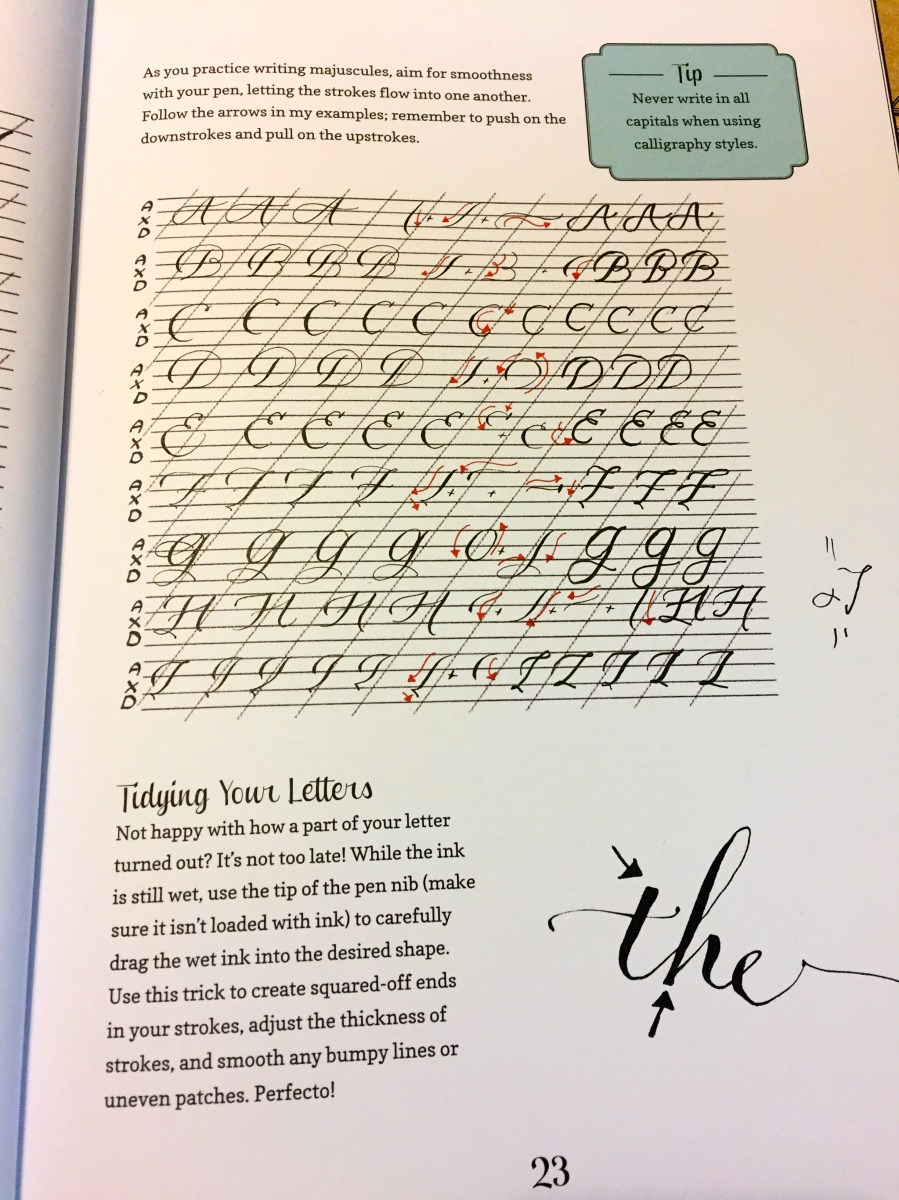 As you practice writing majuscules, aim for smoothness
with your pen, letting the strokes flow into one another.
Follow the arrows in my examples; remember to push on the
downstrokes and pull on the upstrokes.
Tip
Never write in all
capitals when using
calligraphy styles.
A
X
D
A A A ( + + A A A
A
X
D
B B B B + + B B B
A
X
D
C C C C C C C C C C C
A
X
D
D D D D + D D D
A
X
D
E E E E E + E E E E
A
X
D
F F F F + + F F F
A
X
D
G G G G + G G G
A
X
D
H H H H + + + H H
A
X
D
I I I I I + I I I I I
Tidying Your Letters
Not happy with how a part of your letter
turned out? It's not too late! While the ink
is still wet, use the tip of the pen nib (make
sure it isn't loaded with ink) to carefully
drag the wet ink into the desired shape.
Use this trick to create squared-off ends
in your strokes, adjust the thickness of
strokes, and smooth any bumpy lines or
uneven patches. Perfecto!
the
23